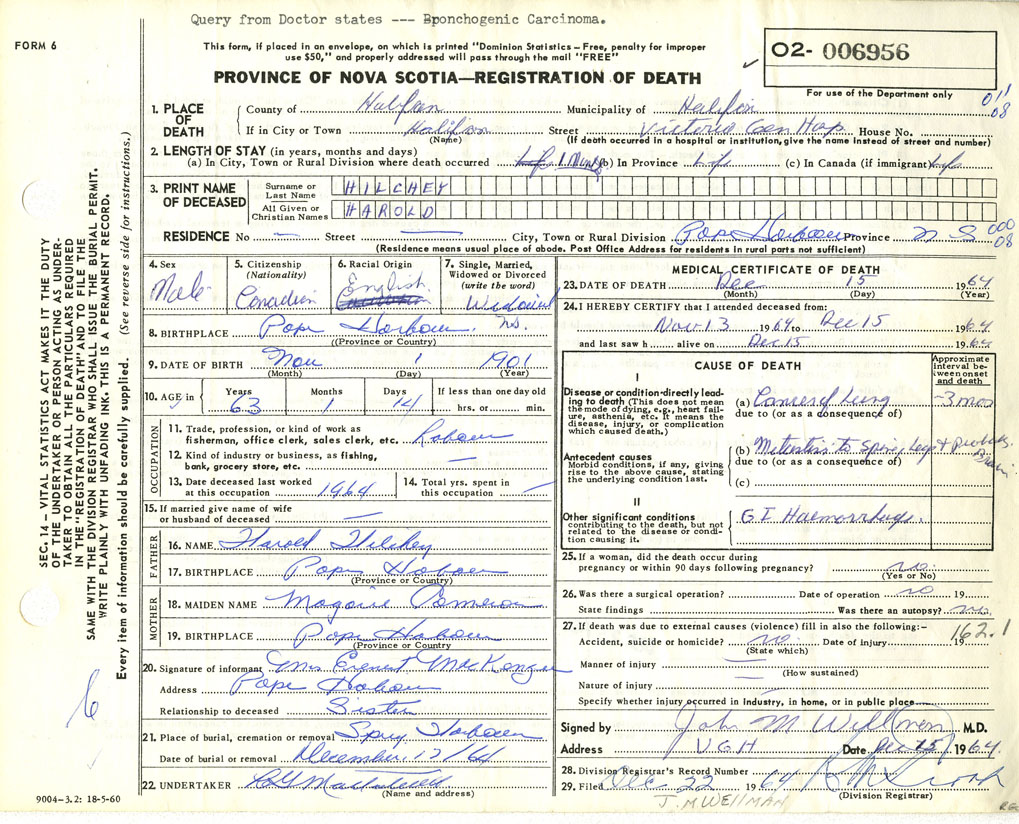 Query from Doctor states --- Bponchogenic Carcinoma.
FORM 6
This form, if placed in an envelope, on which is printed "Dominion Statistics – Free, penalty for improper
use $50," and properly addressed will pass through the mail "FREE"
02- 006956
For use of the Department only
PROVINCE OF NOVA SCOTIA—REGISTRATION OF DEATH
011
08
1. PLACE OF DEATH
County of Halifax Municipality of Halifax
If in City or Town Halifax (Name) Street Victoria Gen Hosp House No.
(If death occurred in a hospital or institution, give the name instead of street and number)
2. LENGTH OF STAY (in years, months and days)
(a) In City, Town or Rural Division where death occurred (b) In Province Life (c) In Canada (if immigrant) Life
3. PRINT NAME OF DECEASED
Surname or Last Name HILCHEY
All Given or Christian Names HAROLD
RESIDENCE No — Street — City, Town or Rural Division Pope Harbour Province N S
000
08
(Residence means usual place of abode. Post Office Address for residents in rural parts not sufficient)
4. Sex Male
5. Citizenship (Nationality) Canadian
6. Racial Origin English
7. Single, Married, Widowed or Divorced (write the word) Widowed
8. BIRTHPLACE Pope Harbour NS.
(Province or Country)
9. DATE OF BIRTH Nov 1 1901
(Month) (Day) (Year)
10. AGE in Years 63 Months 1 Days 14 If less than one day old hrs. or min.
OCCUPATION
11. Trade, profession, or kind of work as fisherman, office clerk, sales clerk, etc. Labour
12. Kind of industry or business, as fishing, bank, grocery store, etc. —
13. Date deceased last worked at this occupation 1964
14. Total yrs. spent in this occupation —
15. If married give name of wife or husband of deceased —
FATHER
16. NAME Harold Hilchey
17. BIRTHPLACE Pope Harbour
(Province or Country)
MOTHER
18. MAIDEN NAME Cameron
19. BIRTHPLACE Pope Harbour
(Province or Country)
20. Signature of informant Mrs Ernest MacKenzie
Address Pope Harbour
Relationship to deceased Sister
21. Place of burial, cremation or removal Spry Harbour
Date of burial or removal December 17/64
22. UNDERTAKER
(Name and address)
9004-3.2: 18-5-60
MEDICAL CERTIFICATE OF DEATH
23. DATE OF DEATH Dec 15 1964
(Month) (Day) (Year)
24. I HEREBY CERTIFY that I attended deceased from:
Nov 13 1964 to Dec 15 1964
and last saw h alive on Dec 15 1964
CAUSE OF DEATH
Approximate interval between onset and death
I
Disease or condition directly leading to death (This does not mean the mode of dying, e.g., heart failure, asthenia, etc. It means the disease, injury, or complication which caused death.)
(a) Cancer of Lung ~3 mos
due to (or as a consequence of)
Antecedent causes
Morbid conditions, if any, giving rise to the above cause, stating the underlying condition last.
(b) Metastasis to Spine, Leg & Probably Brain
due to (or as a consequence of)
(c)
II
Other significant conditions contributing to the death, but not related to the disease or condition causing it.
G.I Haemorrhage.
25. If a woman, did the death occur during pregnancy or within 90 days following pregnancy? no.
(Yes or No)
26. Was there a surgical operation? Date of operation no 19
State findings Was there an autopsy? no.
27. If death was due to external causes (violence) fill in also the following:–
162.1
Accident, suicide or homicide? no. Date of injury 19
(State which)
Manner of injury —
(How sustained)
Nature of injury —
Specify whether injury occurred in industry, in home, or in public place
Signed by John M Wellman M.D.
Address VGH Date Dec 15, 1964
28. Division Registrar's Record Number
29. Filed Dec 22 1964
(Division Registrar)
J. M WELLMAN
SEC. 14 — VITAL STATISTICS ACT MAKES IT THE DUTY
OF THE UNDERTAKER OR PERSON ACTING AS UNDER-
TAKER TO OBTAIN ALL THE PARTICULARS REQUIRED
IN THE "REGISTRATION OF DEATH" AND TO FILE THE
SAME WITH THE DIVISION REGISTRAR WHO SHALL ISSUE THE BURIAL PERMIT.
WRITE PLAINLY WITH UNFADING INK. THIS IS A PERMANENT RECORD.
Every item of information should be carefully supplied. (See reverse side for instructions.)
6